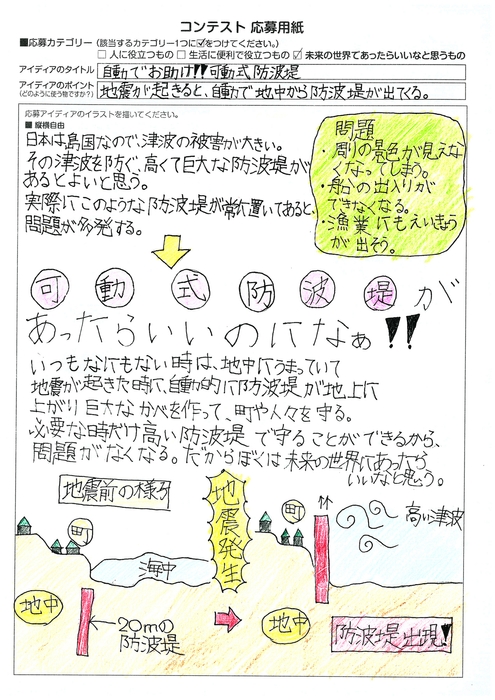 コンテスト 応募用紙
■応募カテゴリー(該当するカテゴリー1つに☑をつけてください。)
□ 人に役立つもの □ 生活に便利で役立つもの ☑ 未来の世界であったらいいなと思うもの
アイディアのタイトル 自動でお助け!!可動式防波堤
アイディアのポイント 地震が起きると、自動で地中から防波堤が出てくる。
(どのように使う物ですか?)
応募アイディアのイラストを描いてください。
■ 縦横自由
日本は島国なので、津波の被害が大きい。
その津波を防ぐ、高くて巨大な防波堤が
あるとよいと思う。
実際にこのような防波堤が常に置いてあると、
問題が多発する。
問題
・周りの景色が見えな
くなってしまう。
・船の出入りが
できなくなる。
・漁業にもえいきょう
が出そう。
可動式防波堤が
あったらいいのになぁ!!
いつもなにもない時は、地中にうまっていて
地震が起きた時に、自動的に防波堤が地上に
上がり巨大なかべを作って、町や人々を守る。
必要な時だけ高い防波堤で守ることができるから、
問題がなくなる。だからぼくは未来の世界にあったら
いいなと思う。
地震前の様子
町
海中
地中
20mの
防波堤
地震発生
町
高い津波
地中
防波堤出現!